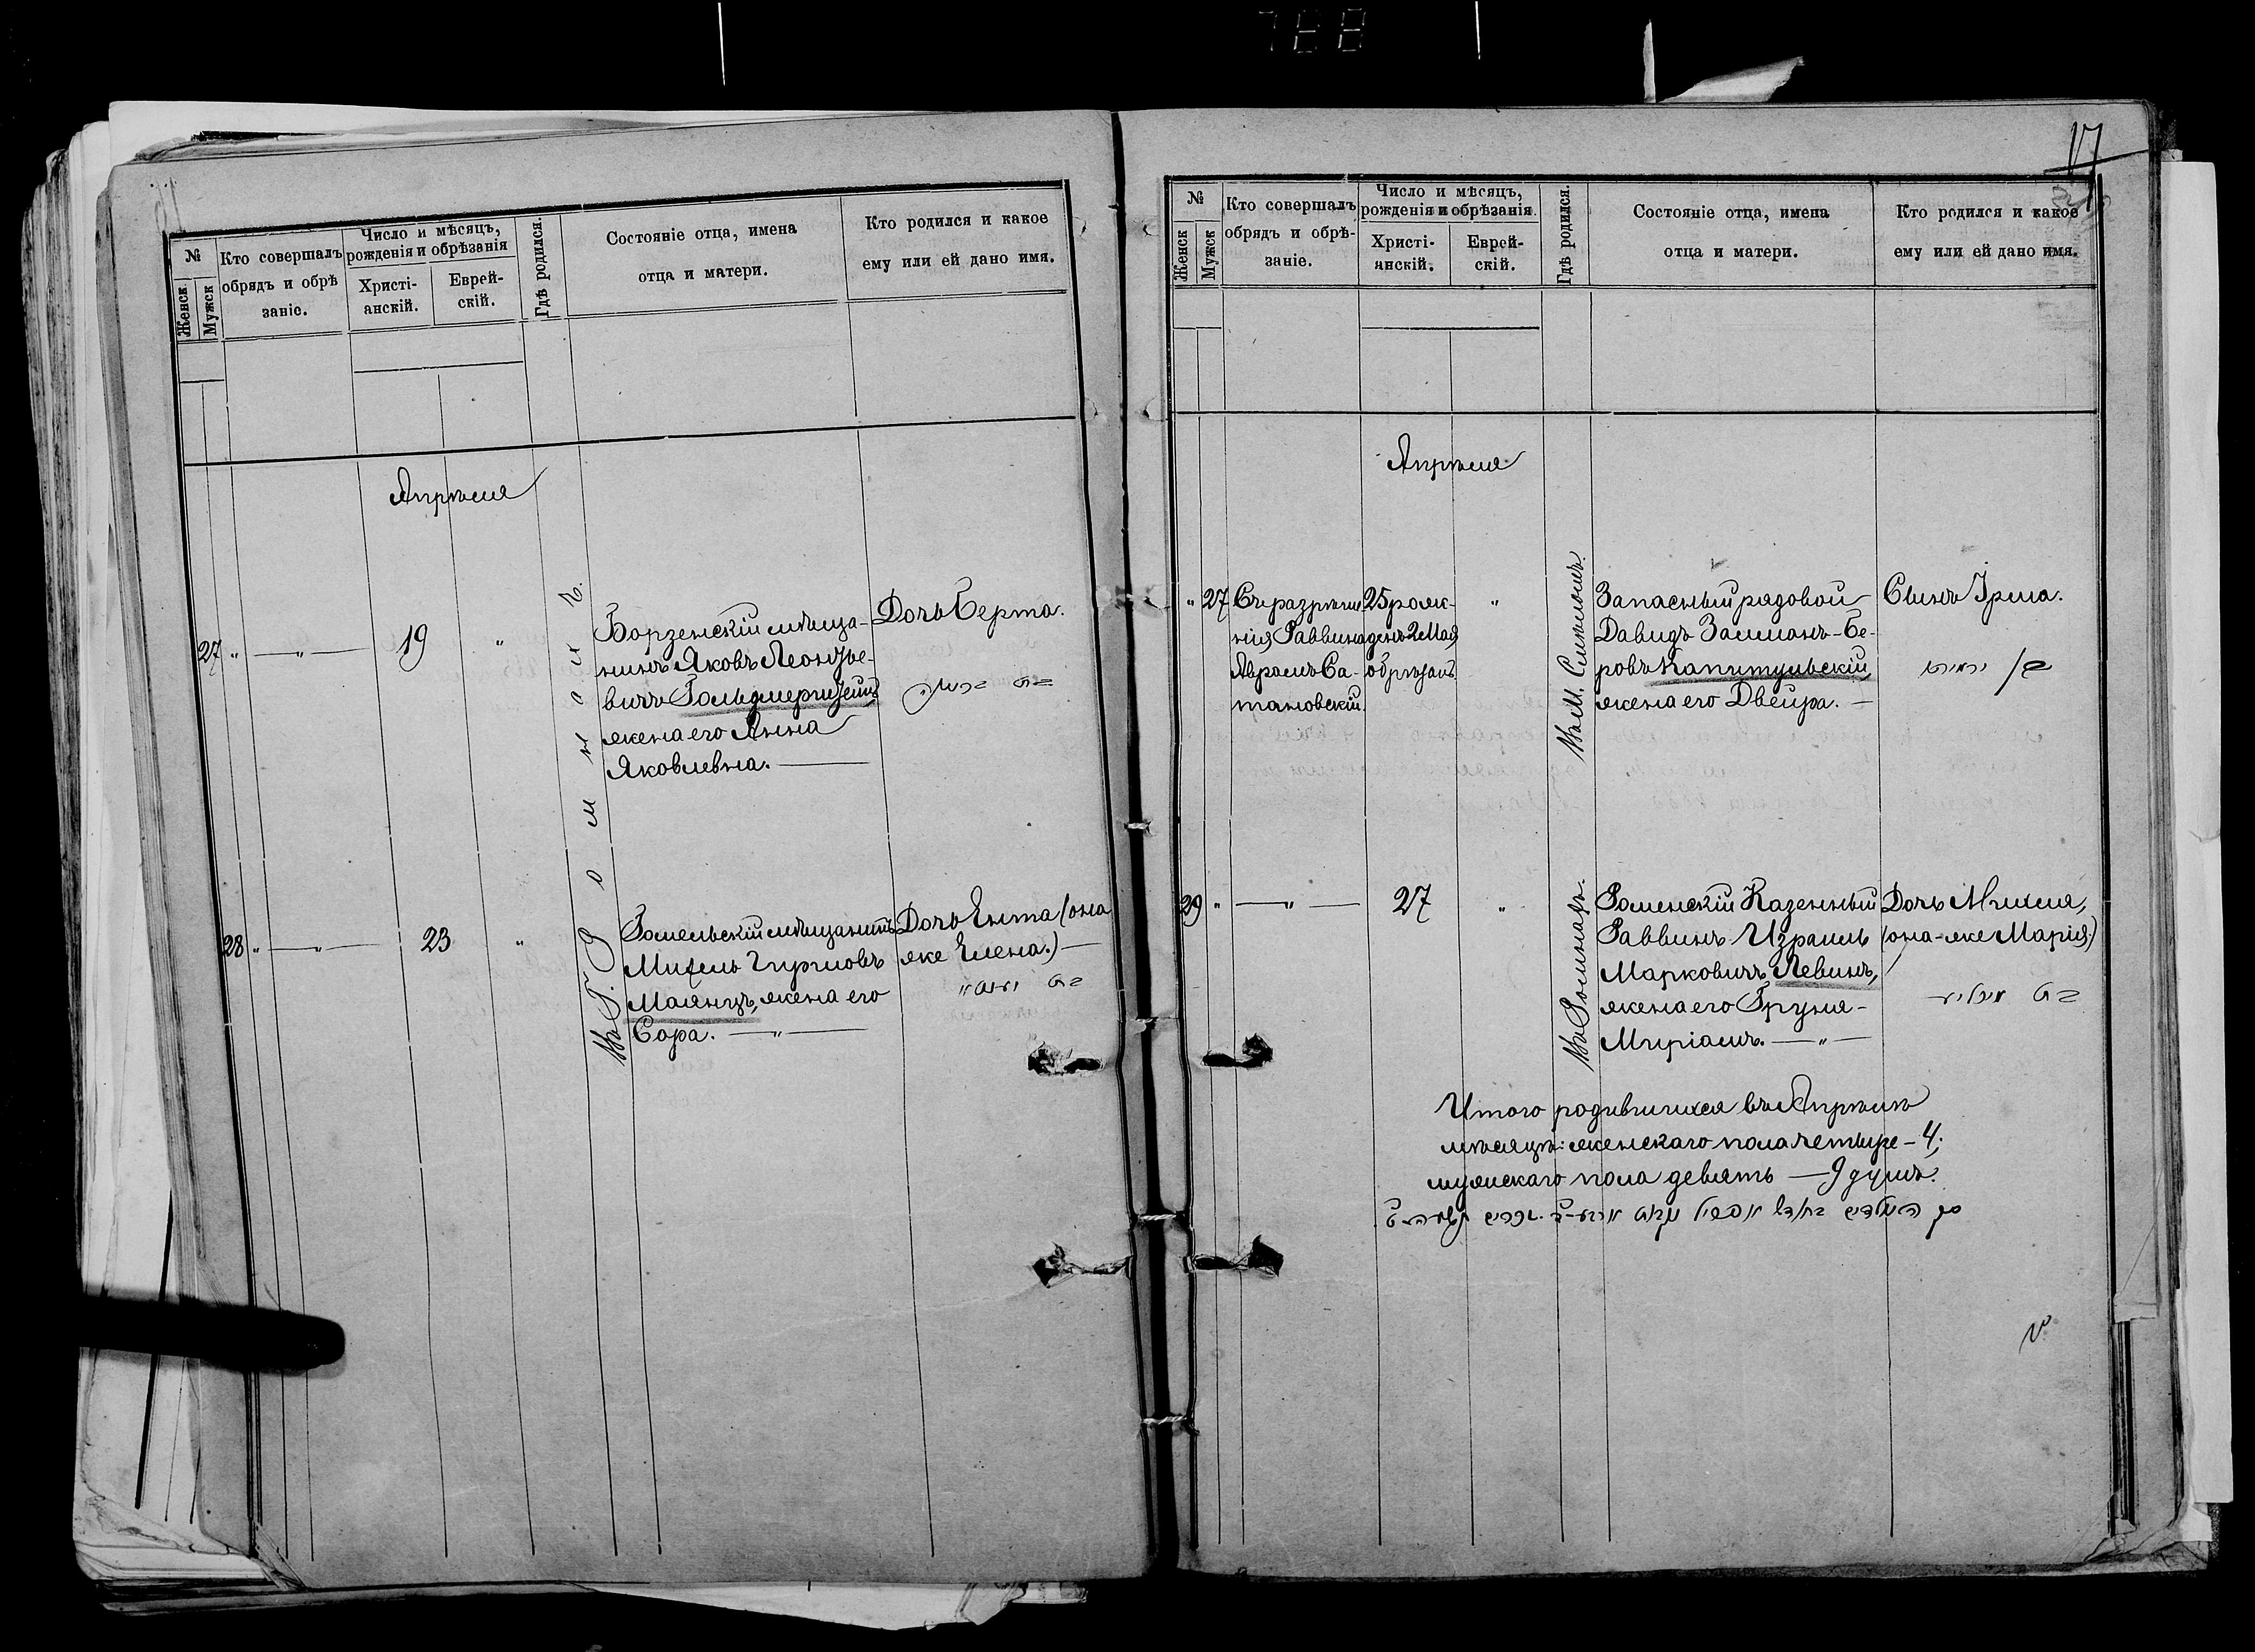 788
№
Женск.
Мужск
Кто совершалъ
обрядъ и обрѣ
заніе.
Число и мѣсяцъ,
рожденія и обрѣзанія
Христі-
анскій.
Еврей-
скій.
Гдѣ родился.
Состояніе отца, имена
отца и матери.
Кто родился и какое
ему или ей дано имя.
Апрѣля
27 " — " — 19 "
Въ Г. Ромнахъ.
Борзенскій мѣща-
нинъ Яковъ Леонтье-
вичъ
жена его Анна
Яковлевна. —
Дочь Берта.
28 " — " — 23 "
Гомельскій мѣщанинъ
Михель Гиршовъ
Маянцъ, жена его
Сора. — " —
Дочь Ента (она
же Елена.) —
17
№
Женск
Мужск
Кто совершалъ
обрядъ и обрѣ-
заніе.
Число и мѣсяцъ,
рожденія и обрѣзанія.
Христі-
анскій.
Еврей-
скій.
Гдѣ родился.
Состояніе отца, имена
отца и матери.
Кто родился и какое
ему или ей дано имя.
Апрѣля
" 27
Съ разрѣше-
нія Раввина
Авраамъ Са-
тановскій.
25 рож-
денъ 2 Мая
обрѣзанъ
"
Въ М. Смѣломъ.
Запасный рядовой
Давидъ Залманъ-Бе-
ровъ Капитульскій,
жена его Двейра. —
Сынъ Ірма.
29 " — " — 27 "
Въ Ромнахъ.
Роменскій Казенный
Раввинъ Израиль
Марковичъ Левинъ,
жена его Груня-
Миріамъ. — " —
Дочь Михля,
(она-же Марія.)
Итого родившихся въ Апрѣлѣ
мѣсяцѣ: женскаго пола четыре – 4;
мужскаго пола девять — 9 душъ.